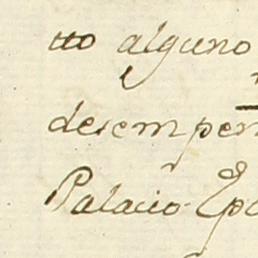 tto alguno
desempen
Palacio Epo